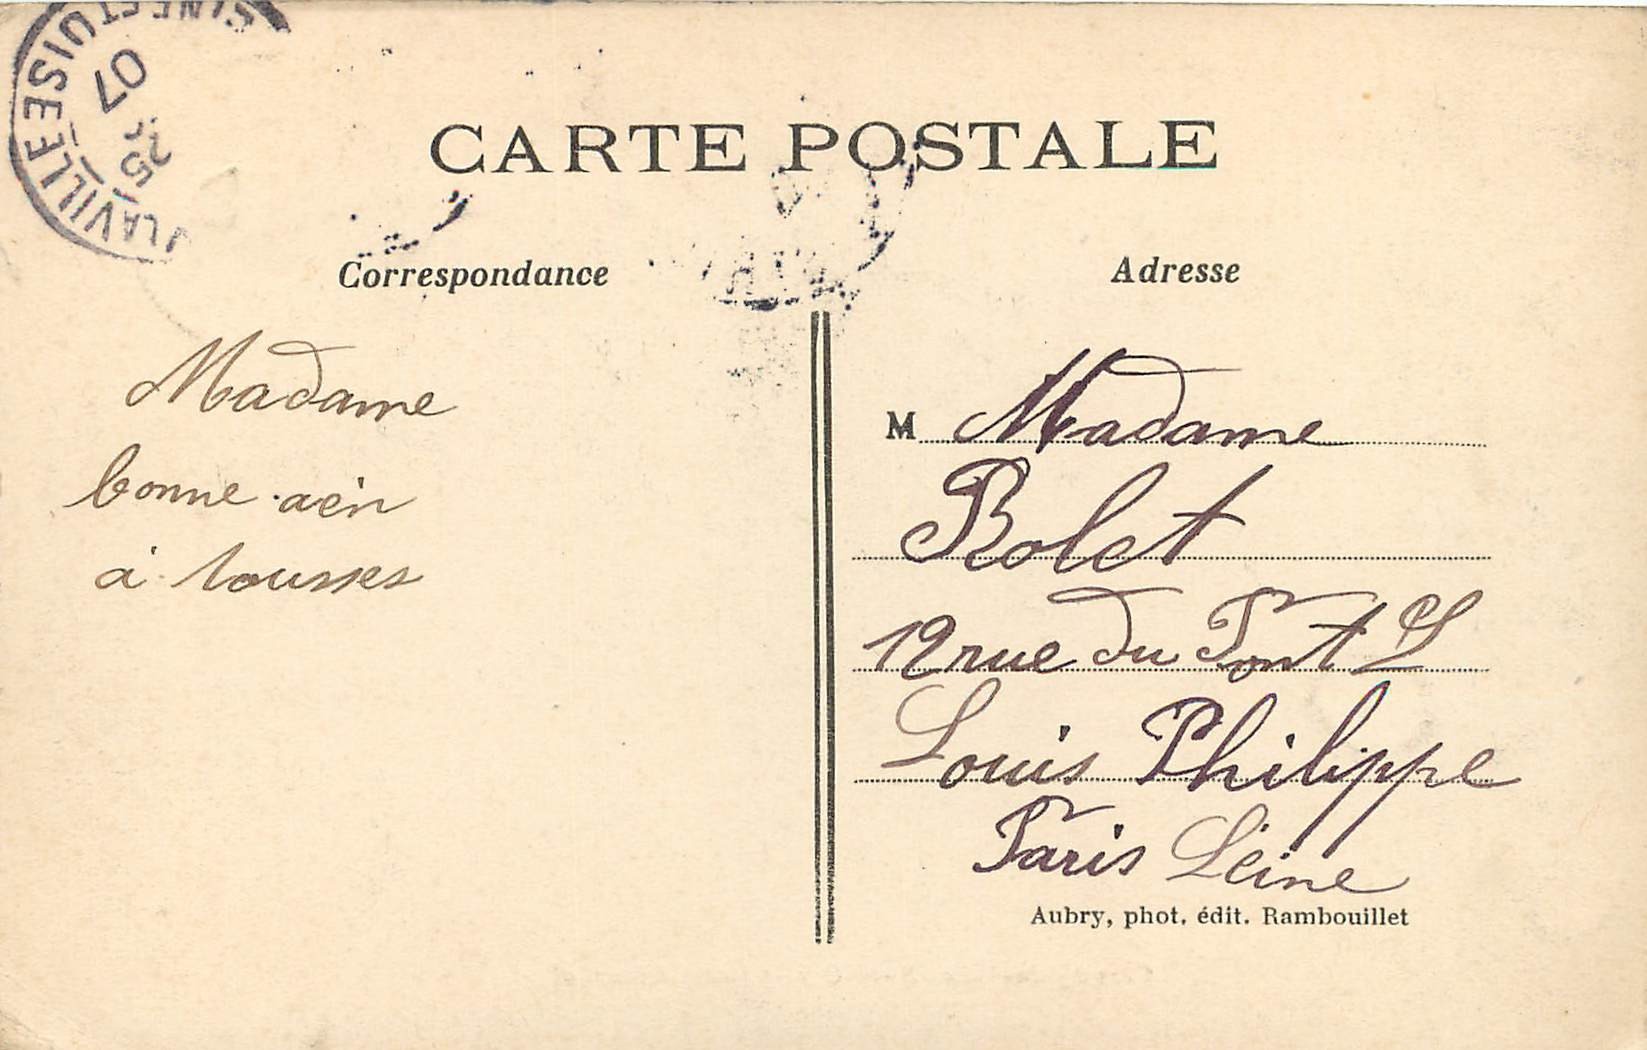 CARTE POSTALE
Correspondance
Adresse
Madame
bonne aén
à tousses
M Madame
Rolet
12 rue du Pont L
Louis Philippe
Paris Seine
Aubry, phot. édit. Rambouillet
07
25